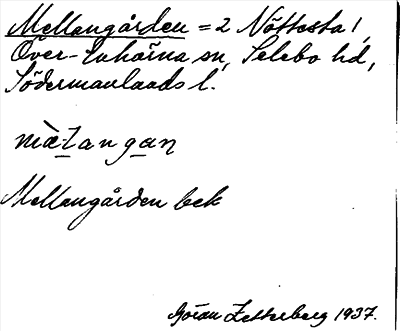 Mellangården = 2 Nöttesta 1,
Över-Enhörna sn, Selebo hd,
Södermanlands l.
mæ̀-langan
Mellangården bek
Göran Zetterberg 1937.